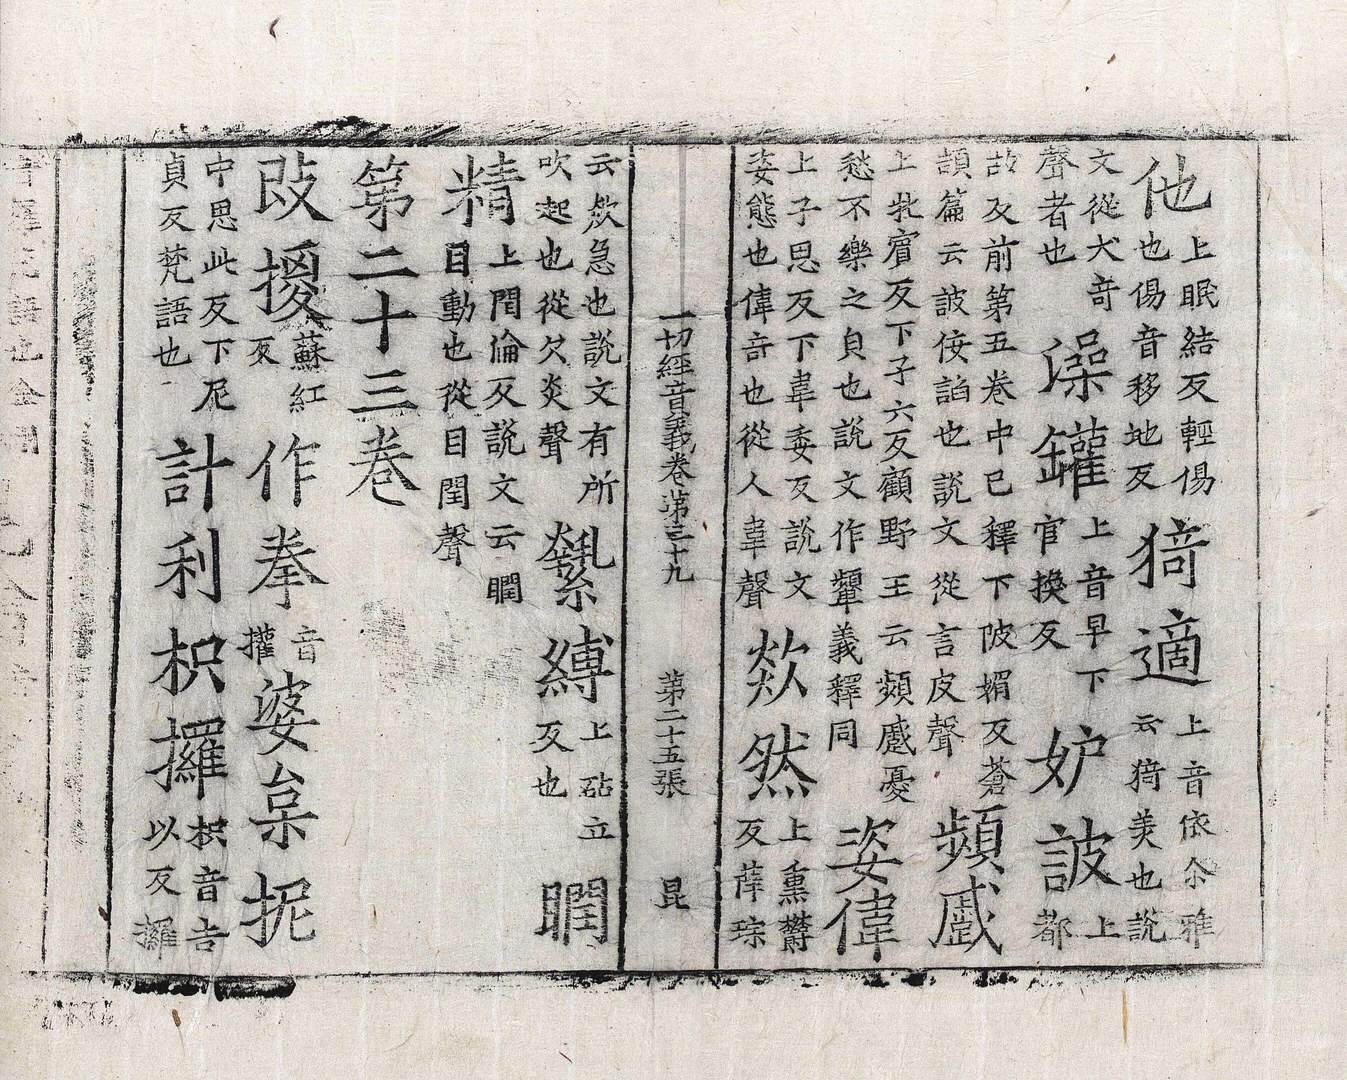 他上眠結反輕傷也傷音移地反猗適上音依尒雅云猗美也說
文從犬奇聲者也澡罐上音早下官換反妒詖上都
故反前第五卷中已釋下陂媚反蒼頡篇云詖佞諂也說文從言皮聲頻慼
上牝賔反下子六反顧野王云頻慼憂愁不樂之皃也說文作顰義釋同姿偉
上子思反下韋委反說文姿態也偉奇也從人韋聲欻然上熏欝反薛琮
一切經音義卷第三十九 第二十五張 昆
云欻急也說文有所吹起也從欠炎聲縶縛上砧立反也瞤
精上閏倫反說文云瞤目動也從目閏聲
第二十三卷
改㨑蘇紅反作拳音權婆枲抳
中思此反下尼貞反梵語也計利枳攞枳音吉以反攞